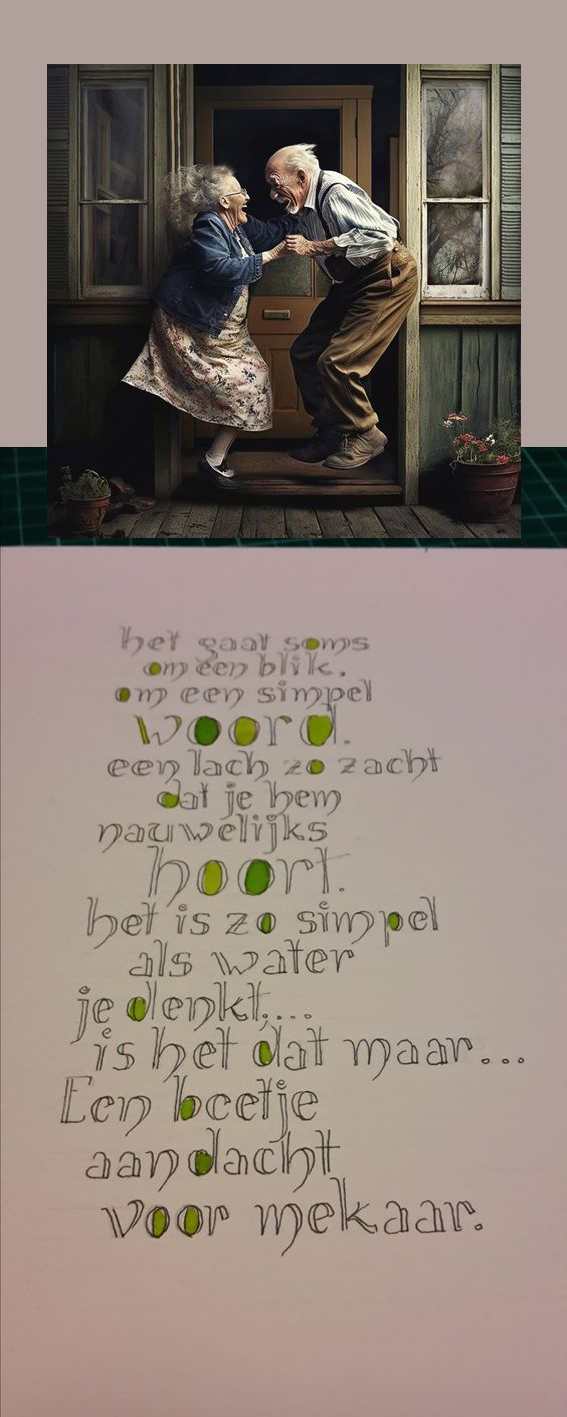 het gaat soms
om een blik,
om een simpel
woord.
een lach zo zacht
dat je hem
nauwelijks
hoort.
het is zo simpel
als water
je denkt,...
is het dat maar...
Een beetje
aandacht
voor mekaar.